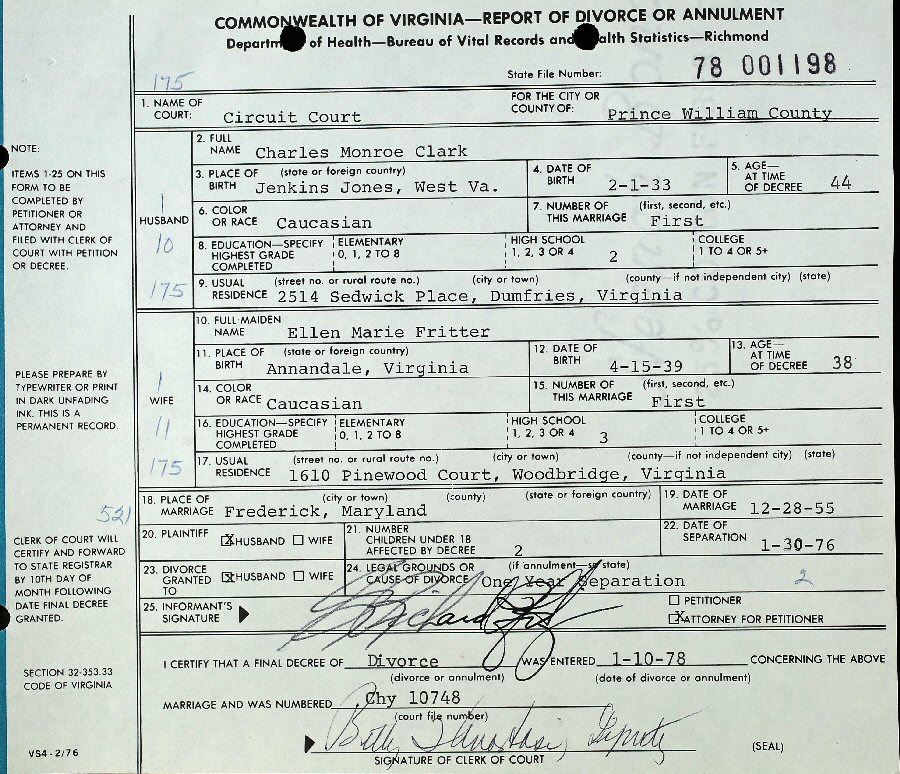 COMMONWEALTH OF VIRGINIA—REPORT OF DIVORCE OR ANNULMENT
Departm of Health—Bureau of Vital Records and alth Statistics—Richmond
State File Number: 78 001198
175
1. NAME OF COURT: Circuit Court FOR THE CITY OR COUNTY OF: Prince William County
NOTE:
ITEMS 1-25 ON THIS
FORM TO BE
COMPLETED BY
PETITIONER OR
ATTORNEY AND
FILED WITH CLERK OF
COURT WITH PETITION
OR DECREE.
HUSBAND
1
10
175
2. FULL NAME Charles Monroe Clark
3. PLACE OF BIRTH (state or foreign country) Jenkins Jones, West Va.
4. DATE OF BIRTH 2-1-33
5. AGE— AT TIME OF DECREE 44
6. COLOR OR RACE Caucasian
7. NUMBER OF THIS MARRIAGE (first, second, etc.) First
8. EDUCATION—SPECIFY HIGHEST GRADE COMPLETED ELEMENTARY 0, 1, 2 TO 8 HIGH SCHOOL 1, 2, 3 OR 4 2 COLLEGE 1 TO 4 OR 5+
9. USUAL RESIDENCE (street no. or rural route no.) (city or town) (county if not independent city) (state)
2514 Sedwick Place, Dumfries, Virginia
PLEASE PREPARE BY
TYPEWRITER OR PRINT
IN DARK UNFADING
INK. THIS IS A
PERMANENT RECORD.
WIFE
1
11
175
10. FULL MAIDEN NAME Ellen Marie Fritter
11. PLACE OF BIRTH (state or foreign country) Annandale, Virginia
12. DATE OF BIRTH 4-15-39
13. AGE— AT TIME OF DECREE 38
14. COLOR OR RACE Caucasian
15. NUMBER OF THIS MARRIAGE (first, second, etc.) First
16. EDUCATION—SPECIFY HIGHEST GRADE COMPLETED ELEMENTARY 0, 1, 2 TO 8 HIGH SCHOOL 1, 2, 3 OR 4 3 COLLEGE 1 TO 4 OR 5+
17. USUAL RESIDENCE (street no. or rural route no.) (city or town) (county—if not independent city) (state)
1610 Pinewood Court, Woodbridge, Virginia
18. PLACE OF MARRIAGE (city or town) (county) (state or foreign country) Frederick, Maryland
19. DATE OF MARRIAGE 12-28-55
521
CLERK OF COURT WILL
CERTIFY AND FORWARD
TO STATE REGISTRAR
BY 10TH DAY OF
MONTH FOLLOWING
DATE FINAL DECREE
GRANTED.
20. PLAINTIFF X HUSBAND WIFE
21. NUMBER CHILDREN UNDER 18 AFFECTED BY DECREE 2
22. DATE OF SEPARATION 1-30-76
23. DIVORCE GRANTED TO X HUSBAND WIFE
24. LEGAL GROUNDS OR CAUSE OF DIVORCE (if annulment—state) One Year Separation
2
25. INFORMANT'S SIGNATURE
PETITIONER
X ATTORNEY FOR PETITIONER
SECTION 32-353.33
CODE OF VIRGINIA
I CERTIFY THAT A FINAL DECREE OF Divorce WAS ENTERED 1-10-78 CONCERNING THE ABOVE
(divorce or annulment) (date of divorce or annulment)
MARRIAGE AND WAS NUMBERED Chy 10748
(court file number)
Deputy
SIGNATURE OF CLERK OF COURT
(SEAL)
VS4-2/76